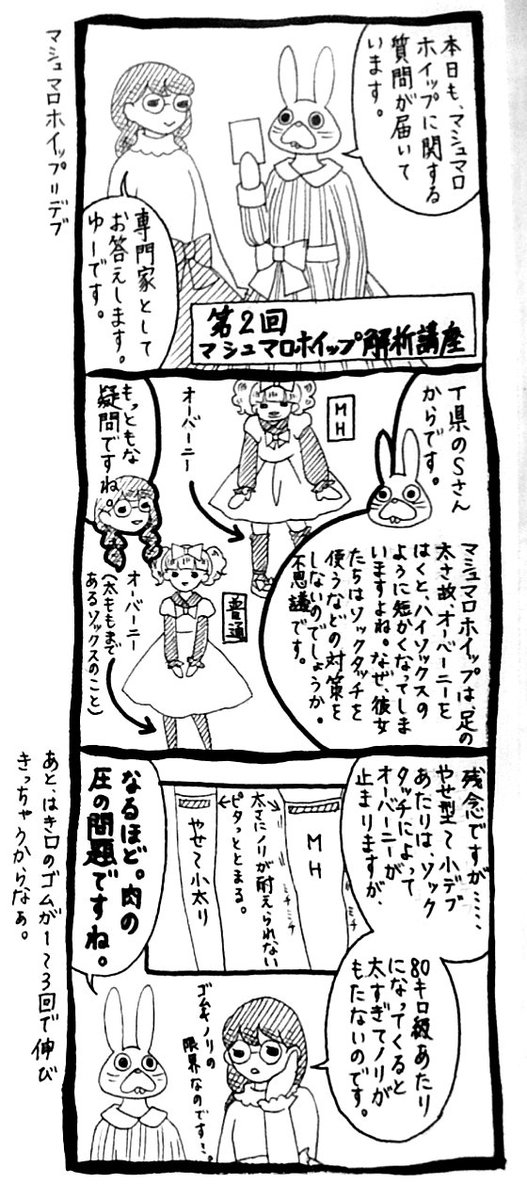 マシュマロホイップ=デブ
本日も、マシュマロ
ホイップに関する
質問が届いて
います。
専門家として
お答えします。
ゆーです。
第2回
マシュマロホイップ解析講座
T県のSさん
からです。
MH
オーバーニー
もっともな
疑問ですね。
マシュマロホイップは、足の
太さ故、オーバーニーを
はくと、ハイソックスの
ように短かくなってしま
いますよね。なぜ、彼女
たちはソックタッチを
使うなどの対策を
しないのでしょうか。
不思議です。
普通
オーバーニー
(太ももまで
あるソックスのこと)
残念ですが……、
やせ型〜小デブ
あたりは、ソック
タッチによって
オーバーニーが
止まりますが、
MH
ミチミチ
ミチ
太さにノリが耐えられない
ピタっととまる。
やせ〜小太り
なるほど。肉の
圧の問題ですね。
80キロ級あたり
になってくると
太すぎてノリが
もたないのです。
ゴムもノリの
限界なのです…。
あと、はき口のゴムが1〜3回で伸び
きっちゃうからなぁ。